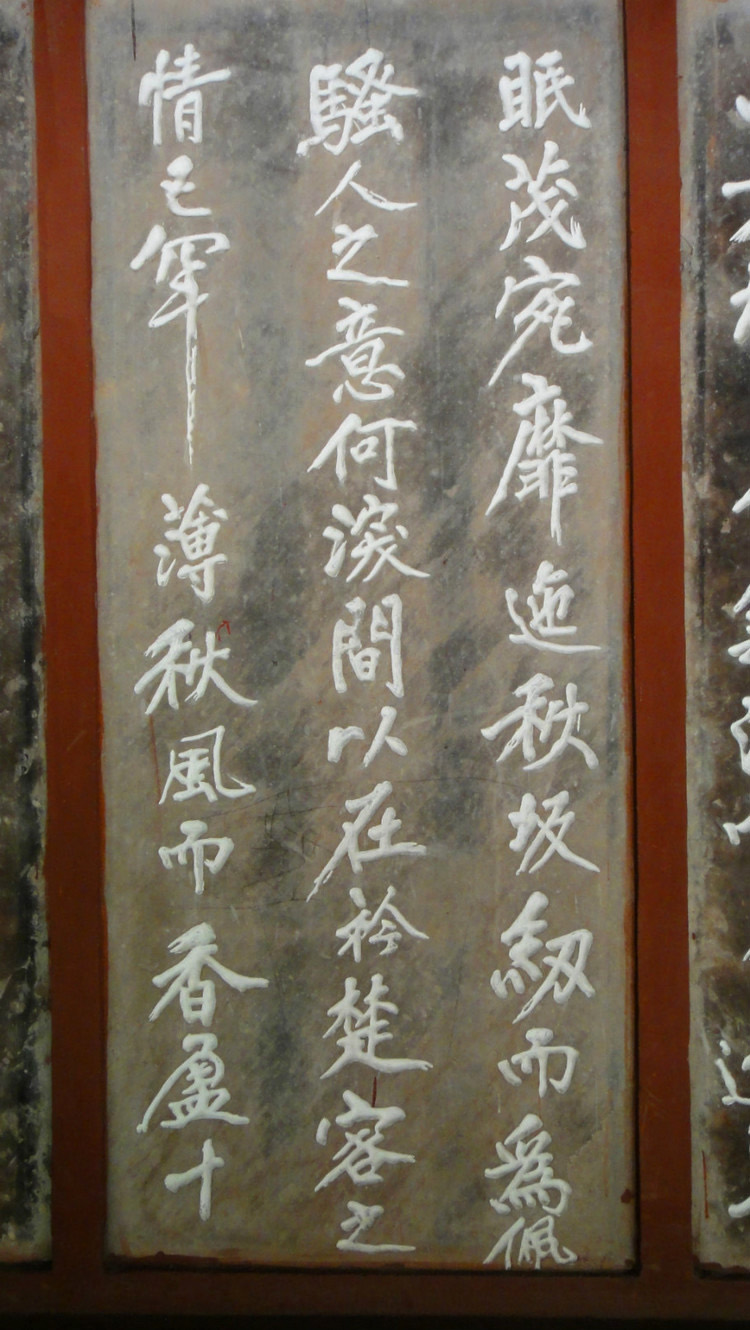 眠茂宛靡迤秋坂紉而為佩
騷人之意何深間以在衿楚客之
情已罕薄秋風而香盈十